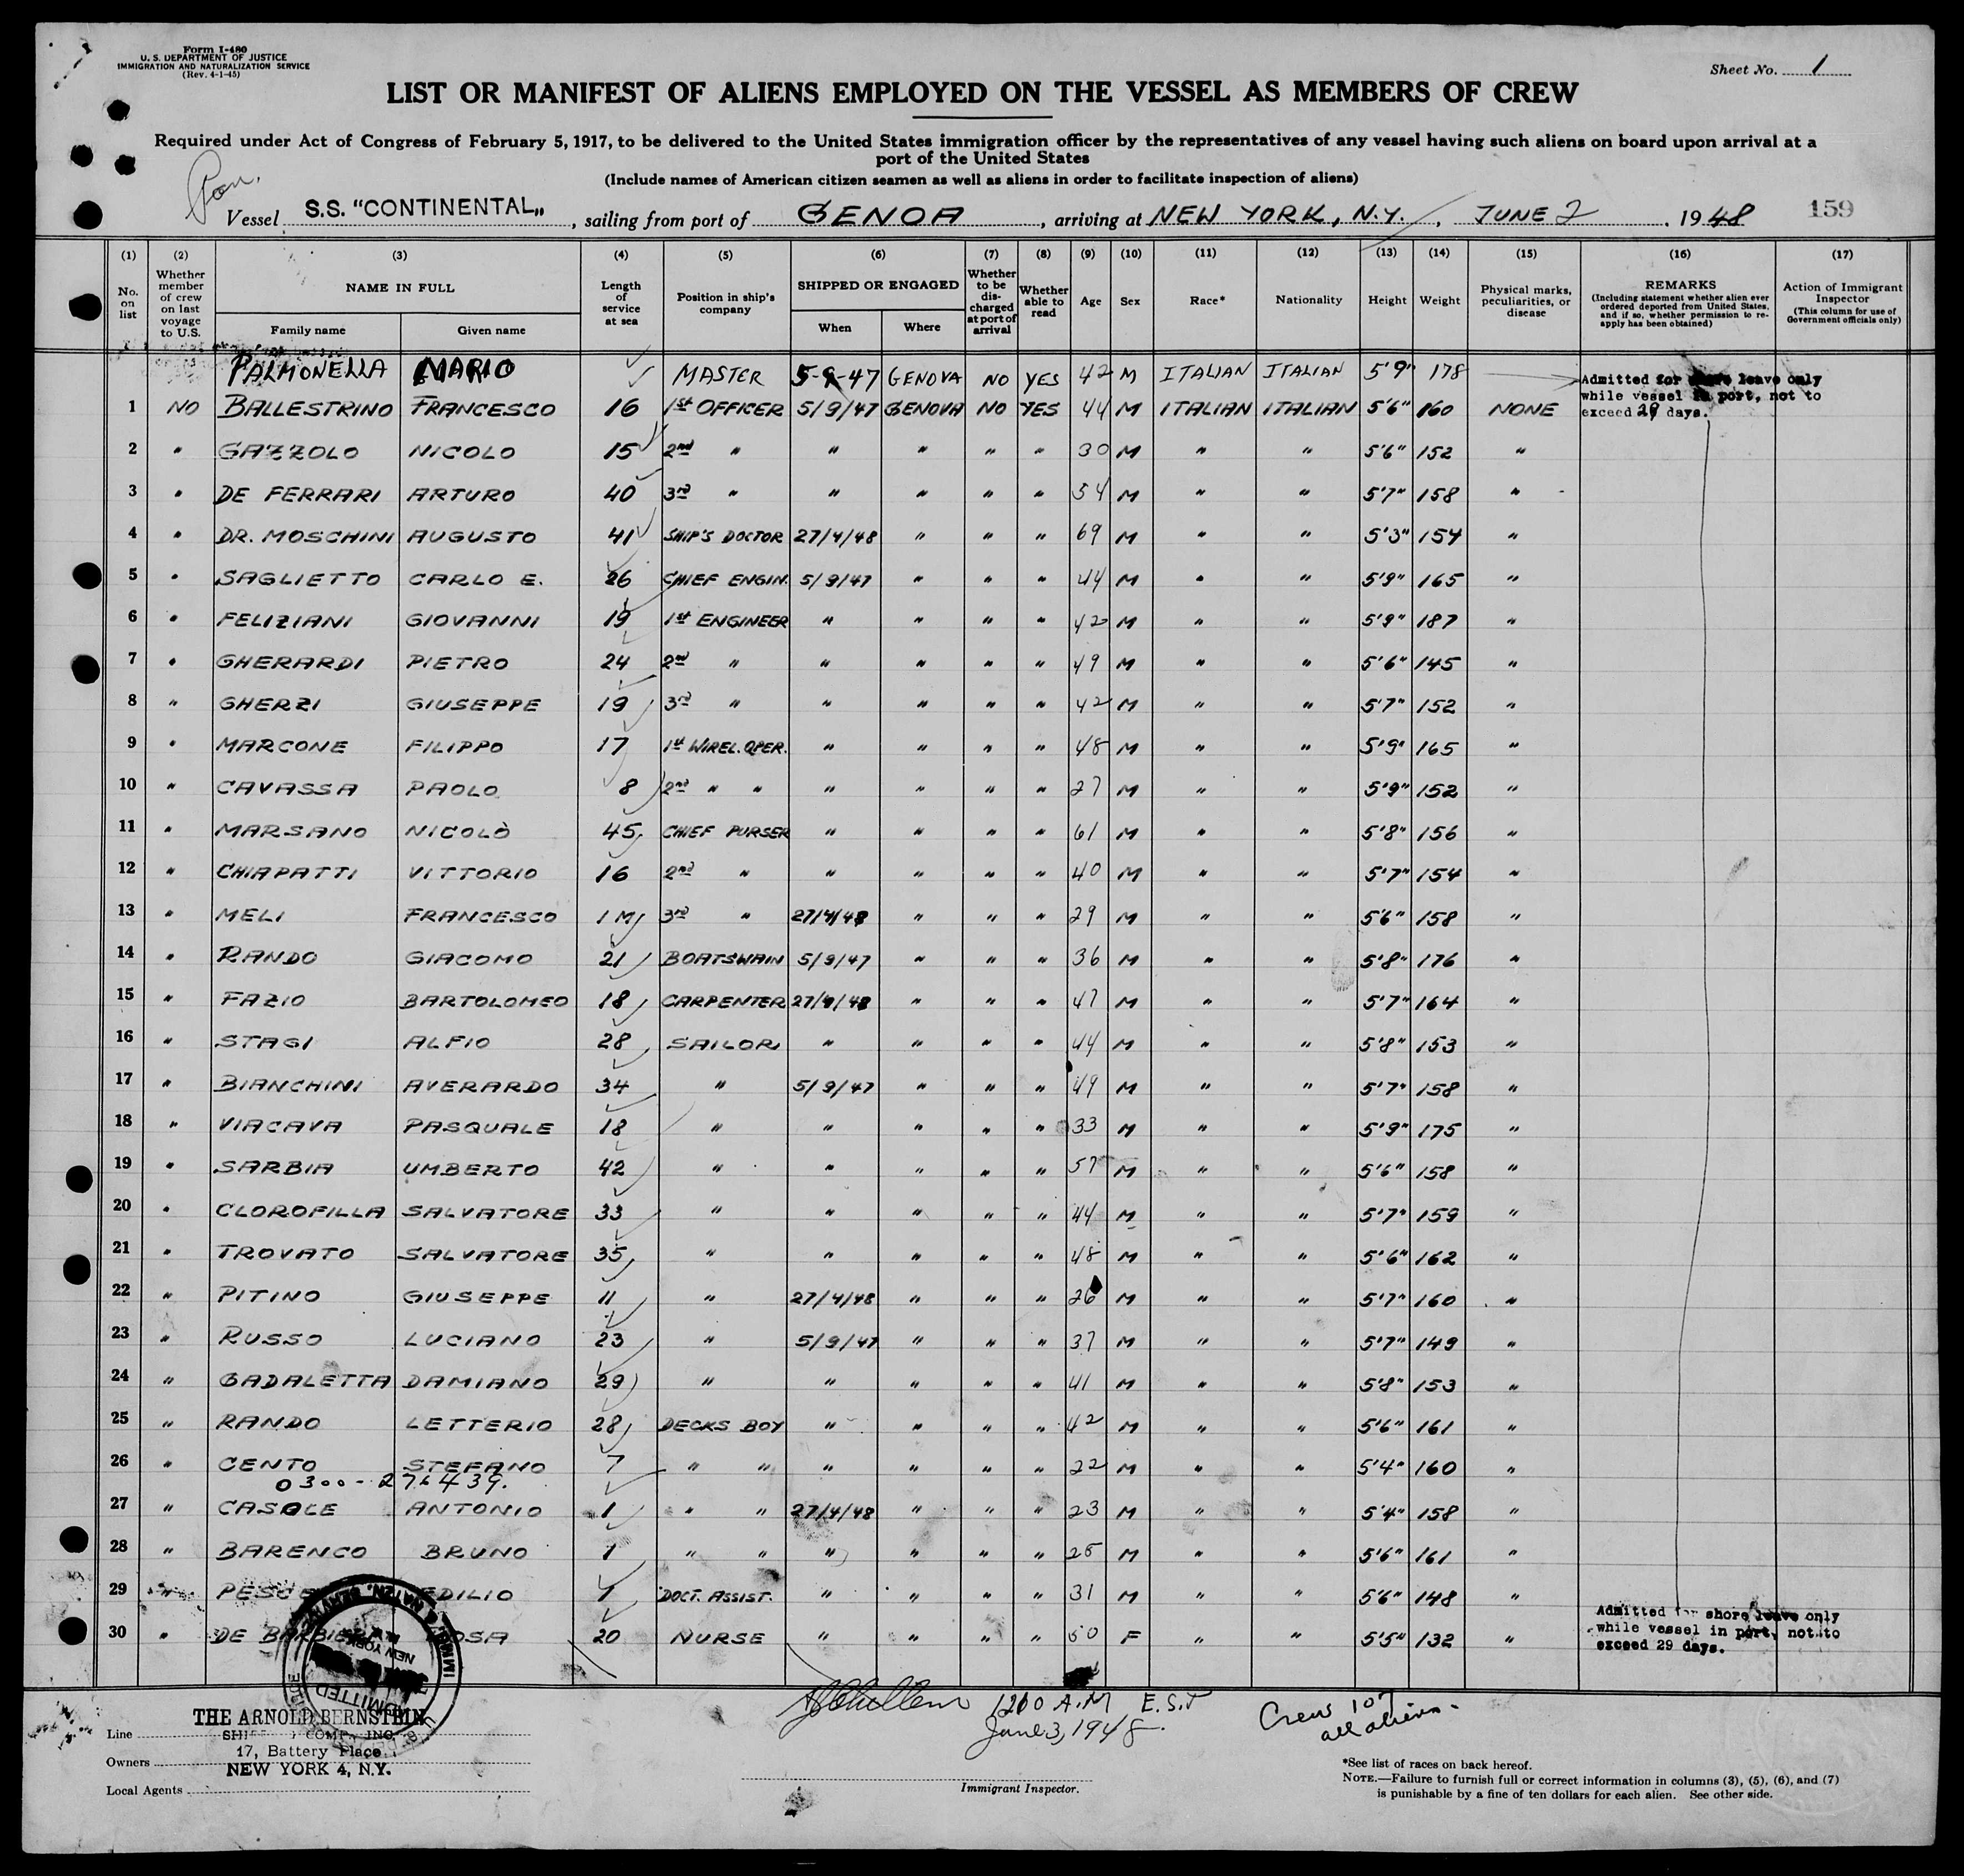 Form I-480
U. S. DEPARTMENT OF JUSTICE
IMMIGRATION AND NATURALIZATION SERVICE
(Rev. 4-1-45)
Sheet No. 1
LIST OR MANIFEST OF ALIENS EMPLOYED ON THE VESSEL AS MEMBERS OF CREW
Required under Act of Congress of February 5, 1917, to be delivered to the United States immigration officer by the representatives of any vessel having such aliens on board upon arrival at a
port of the United States
(Include names of American citizen seamen as well as aliens in order to facilitate inspection of aliens)
Vessel S.S. "CONTINENTAL", sailing from port of GENOA, arriving at NEW YORK, N.Y., JUNE 2, 1948 159
(1) (2) (3) (4) (5) (6) (7) (8) (9) (10) (11) (12) (13) (14) (15) (16) (17)
No. on list Whether member of crew on last voyage to U.S. NAME IN FULL Family name Given name Length of service at sea Position in ship's company SHIPPED OR ENGAGED When Where Whether to be discharged at port of arrival Whether able to read Age Sex Race* Nationality Height Weight Physical marks, peculiarities, or disease REMARKS (Including statement whether alien ever ordered deported from United States, and if so, whether permission to reapply has been obtained) Action of Immigrant Inspector (This column for use of Government officials only)
PALMONELLA MARIO MASTER 5-9-47 GENOVA NO YES 42 M ITALIAN ITALIAN 5'9" 178 Admitted for shore leave only
1 NO BALLESTRINO FRANCESCO 16 1st OFFICER 5/9/47 GENOVA NO YES 44 M ITALIAN ITALIAN 5'6" 160 NONE while vessel in port, not to exceed 29 days.
2 " GAZZOLO NICOLO 15 2nd " " " " " 30 M " " 5'6" 152 "
3 " DE FERRARI ARTURO 40 3rd " " " " " 54 M " " 5'7" 158 "
4 " DR. MOSCHINI AUGUSTO 41 SHIP'S DOCTOR 27/4/48 " " " 69 M " " 5'3" 154 "
5 " SAGLIETTO CARLO E. 26 CHIEF ENGIN. 5/9/47 " " " 44 M " " 5'9" 165 "
6 " FELIZIANI GIOVANNI 19 1st ENGINEER " " " " 42 M " " 5'9" 187 "
7 " GHERARDI PIETRO 24 2nd " " " " " 49 M " " 5'6" 145 "
8 " GHERZI GIUSEPPE 19 3rd " " " " " 42 M " " 5'7" 152 "
9 " MARCONE FILIPPO 17 1st WIREL. OPER. " " " " 48 M " " 5'9" 165 "
10 " CAVASSA PAOLO 8 2nd " " " " " " 27 M " " 5'9" 152 "
11 " MARSANO NICOLÒ 45 CHIEF PURSER " " " " 61 M " " 5'8" 156 "
12 " CHIAPATTI VITTORIO 16 2nd " " " " " 40 M " " 5'7" 154 "
13 " MELI FRANCESCO 1 M 3rd " 27/4/48 " " " 29 M " " 5'6" 158 "
14 " RANDO GIACOMO 21 BOATSWAIN 5/9/47 " " " 36 M " " 5'8" 176 "
15 " FAZIO BARTOLOMEO 18 CARPENTER 27/4/48 " " " 47 M " " 5'7" 164 "
16 " STAGI ALFIO 28 SAILOR " " " " 44 M " " 5'8" 153 "
17 " BIANCHINI AVERARDO 34 " 5/9/47 " " " 49 M " " 5'7" 158 "
18 " VIACAVA PASQUALE 18 " " " " " 33 M " " 5'9" 175 "
19 " SARBIA UMBERTO 42 " " " " " 57 M " " 5'6" 158 "
20 " CLOROFILLA SALVATORE 33 " " " " " 44 M " " 5'7" 159 "
21 " TROVATO SALVATORE 35 " " " " " 48 M " " 5'6" 162 "
22 " PITINO GIUSEPPE 11 " 27/4/48 " " " 26 M " " 5'7" 160 "
23 " RUSSO LUCIANO 23 " 5/9/47 " " " 37 M " " 5'7" 149 "
24 " GADALETTA DAMIANO 29 " " " " " 41 M " " 5'8" 153 "
25 " RANDO LETTERIO 28 DECKS BOY " " " " 42 M " " 5'6" 161 "
26 " CENTO STEFANO 7 " " " " " " 22 M " " 5'4" 160 "
0300-276439.
27 " CASOLE ANTONIO 1 " " 27/4/48 " " " 23 M " " 5'4" 158 "
28 " BARENCO BRUNO 1 " " " " " " 25 M " " 5'6" 161 "
29 " EDILIO 1 DOCT. ASSIST. " " " " 31 M " " 5'6" 148 "
30 " DE ROSA 20 NURSE " " " " 50 F " " 5'5" 132 "
Admitted for shore leave only
while vessel in port, not to
exceed 29 days.
ADMITTED
NEW YORK
1200 A.M E.S.T
June 3, 1948
Crew 107
all aliens
Line THE ARNOLD BERNSTEIN
Owners 17, Battery Place
Local Agents NEW YORK 4, N.Y.
Immigrant Inspector.
*See list of races on back hereof.
NOTE.—Failure to furnish full or correct information in columns (3), (5), (6), and (7)
is punishable by a fine of ten dollars for each alien. See other side.